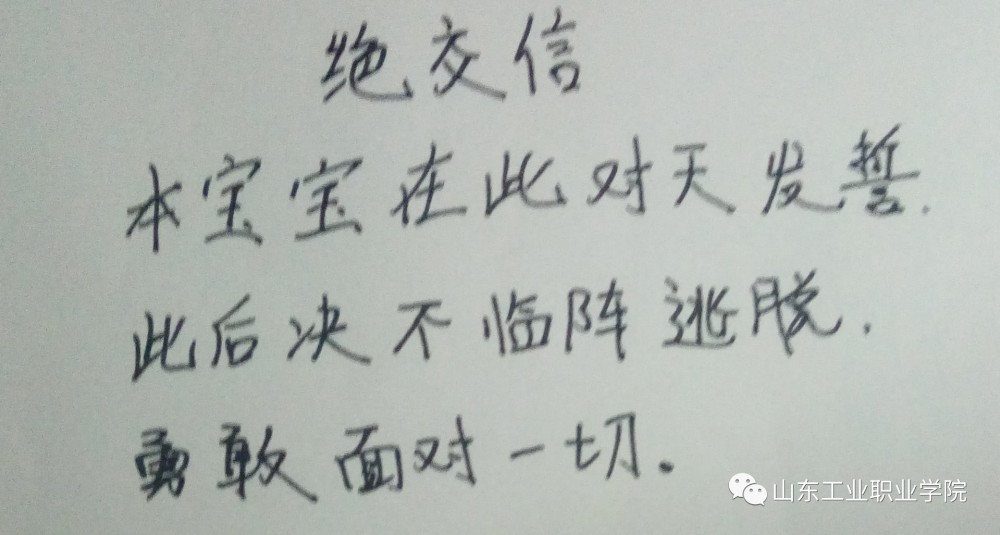 绝交信
本宝宝在此对天发誓.
此后决不临阵逃脱.
勇敢面对一切.
山东工业职业学院